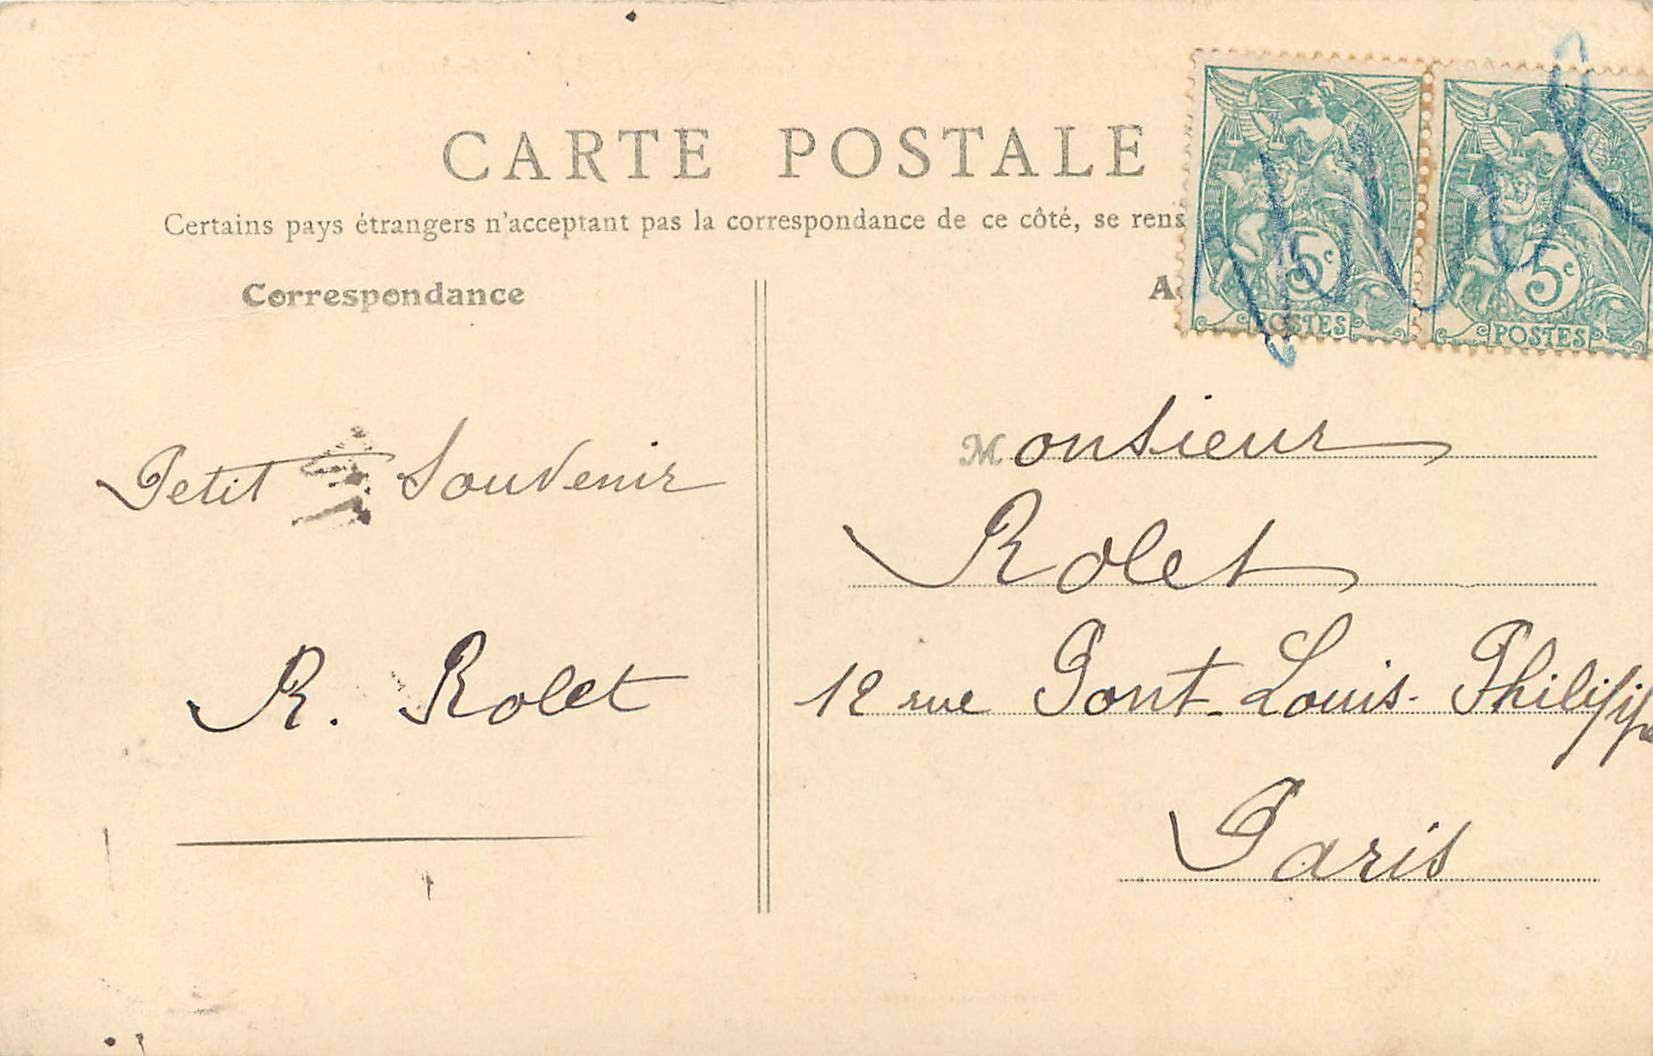 CARTE POSTALE
Certains pays étrangers n'acceptant pas la correspondance de ce côté, se rens
Correspondance
A
5c
POSTES
5c
POSTES
Petit Souvenir
R. Rolet
Monsieur
Rolet
12 rue Pont-Louis-Philippe
Paris